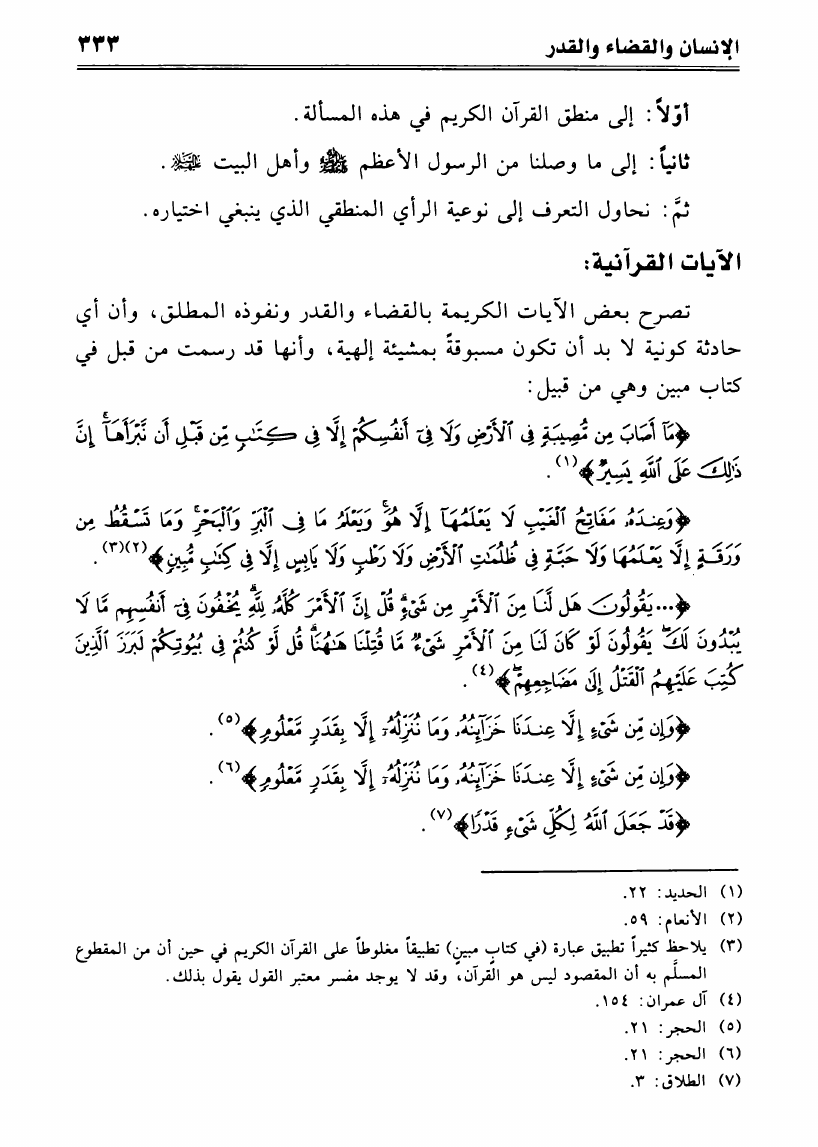 الإنسان والقضاء والقدر ٣٣٣
أوّلاً: إلى منطق القرآن الكريم في هذه المسألة.
ثانياً: إلى ما وصلنا من الرسول الأعظم ﷺ وأهل البيت.
ثمَّ: نحاول التعرف إلى نوعية الرأي المنطقي الذي ينبغي اختياره.
الآيات القرآنية:
تصرح بعض الآيات الكريمة بالقضاء والقدر ونفوذه المطلق، وأن أي
حادثة كونية لا بد أن تكون مسبوقةً بمشيئة إلهية، وأنها قد رسمت من قبل في
كتاب مبين وهي من قبيل:
﴿مَآ أَصَابَ مِن مُّصِيبَةٍ فِي ٱلْأَرْضِ وَلَا فِيٓ أَنفُسِكُمْ إِلَّا فِي كِتَٰبٍ مِّن قَبْلِ أَن نَّبْرَأَهَآ ۚ إِنَّ
ذَٰلِكَ عَلَى ٱللَّهِ يَسِيرٌ﴾(١).
﴿وَعِندَهُۥ مَفَاتِحُ ٱلْغَيْبِ لَا يَعْلَمُهَآ إِلَّا هُوَ ۚ وَيَعْلَمُ مَا فِي ٱلْبَرِّ وَٱلْبَحْرِ ۚ وَمَا تَسْقُطُ مِن
وَرَقَةٍ إِلَّا يَعْلَمُهَا وَلَا حَبَّةٍ فِي ظُلُمَٰتِ ٱلْأَرْضِ وَلَا رَطْبٍ وَلَا يَابِسٍ إِلَّا فِي كِتَٰبٍ مُّبِينٍ﴾(٢)(٣).
﴿...يَقُولُونَ هَل لَّنَا مِنَ ٱلْأَمْرِ مِن شَيْءٍ ۗ قُلْ إِنَّ ٱلْأَمْرَ كُلَّهُۥ لِلَّهِ ۗ يُخْفُونَ فِيٓ أَنفُسِهِم مَّا لَا
يُبْدُونَ لَكَ ۖ يَقُولُونَ لَوْ كَانَ لَنَا مِنَ ٱلْأَمْرِ شَيْءٌ مَّا قُتِلْنَا هَٰهُنَا ۗ قُل لَّوْ كُنتُمْ فِي بُيُوتِكُمْ لَبَرَزَ ٱلَّذِينَ
كُتِبَ عَلَيْهِمُ ٱلْقَتْلُ إِلَىٰ مَضَاجِعِهِمْ ۖ﴾(٤).
﴿وَإِن مِّن شَيْءٍ إِلَّا عِندَنَا خَزَآئِنُهُۥ وَمَا نُنَزِّلُهُۥٓ إِلَّا بِقَدَرٍ مَّعْلُومٍ﴾(٥).
﴿وَإِن مِّن شَيْءٍ إِلَّا عِندَنَا خَزَآئِنُهُۥ وَمَا نُنَزِّلُهُۥٓ إِلَّا بِقَدَرٍ مَّعْلُومٍ﴾(٦).
﴿قَدْ جَعَلَ ٱللَّهُ لِكُلِّ شَيْءٍ قَدْرًا﴾(٧).
(١) الحديد: ٢٢.
(٢) الأنعام: ٥٩.
(٣) يلاحظ كثيراً تطبيق عبارة (في كتابٍ مبينٍ) تطبيقاً مغلوطاً على القرآن الكريم في حين أن من المقطوع
المسلَّم به أن المقصود ليس هو القرآن، وقد لا يوجد مفسر معتبر القول يقول بذلك.
(٤) آل عمران: ١٥٤.
(٥) الحجر: ٢١.
(٦) الحجر: ٢١.
(٧) الطلاق: ٣.